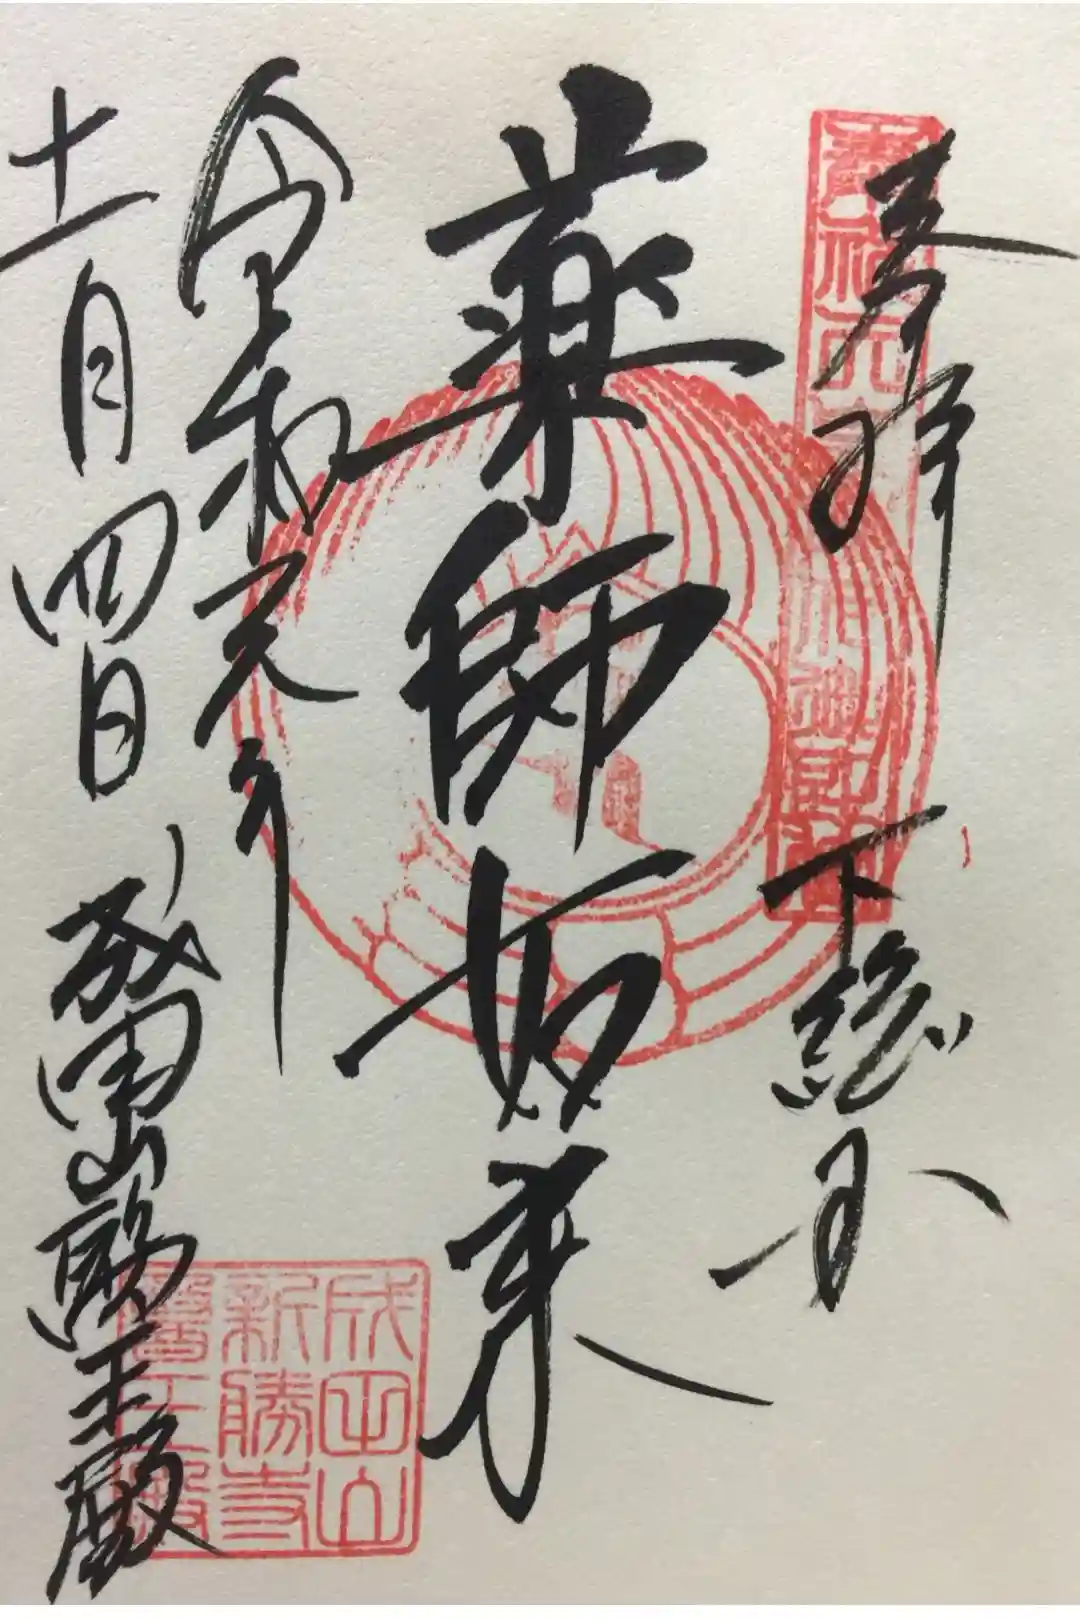 奉拝
下総国
薬師如来
令和元年
十一月四日 成田山醫王殿
成田山
新勝寺
醫王殿